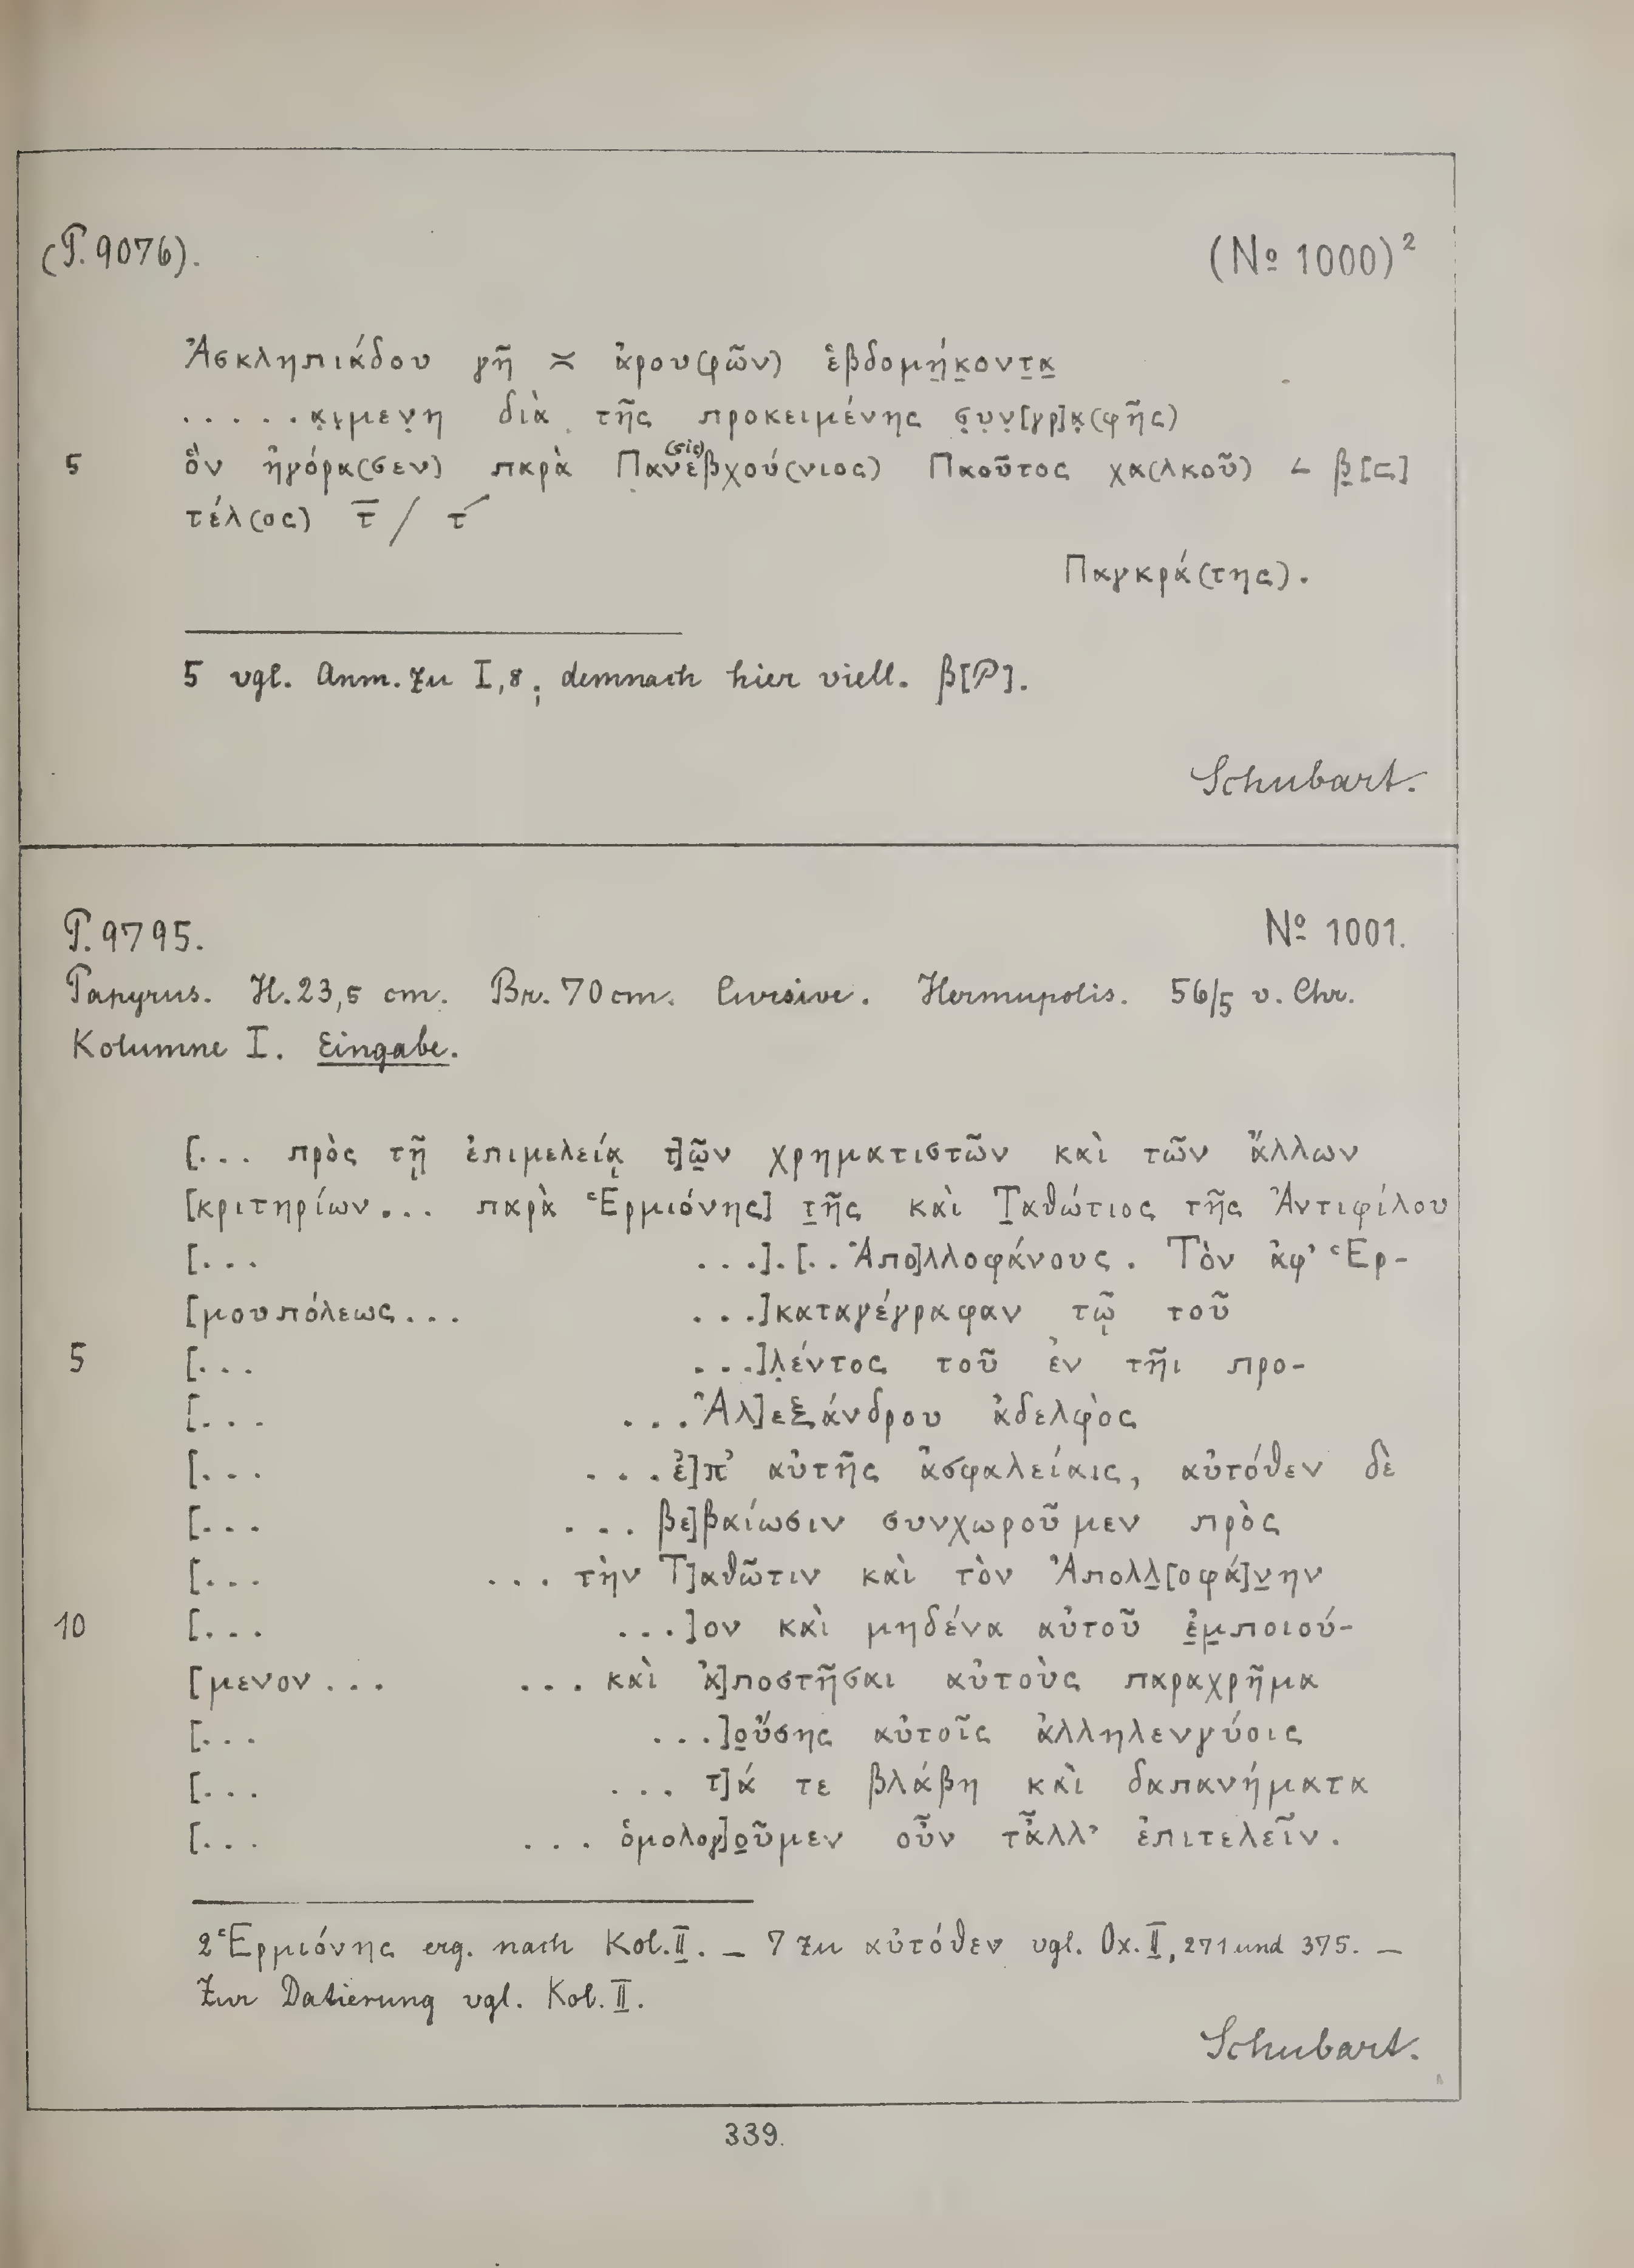 (P. 9076). (Nº 1000)²
Ἀσκληπιάδου γῆ ≍ ἀρου(ρῶν) ἑβδομή̣κ̣οντ̣α̣
. . . . . . κ̣ι̣μεν̣η διὰ τῆς προκειμένης σ̣υ̣ν̣[γρ]α̣(φῆς)
5 ὃν ἠγόρα(σεν) παρὰ Πανεβχού(νιος) (sic) Παοῦτος χα(λκοῦ) ∠ β̣[⊏]
τέλ(ος) τ̅ / τ´
Παγκρά(της).
5 vgl. Anm. zu I, 8; demnach hier viell. β[𐅵].
Schubart.
P. 9795. Nº 1001.
Papyrus. H. 23,5 cm. Br. 70 cm. Cursive. Hermupolis. 56/5 v. Chr.
Kolumne I. Eingabe.
[. . . πρὸς τῇ ἐπιμελείᾳ τ]ῶ̣ν χρηματιστῶν καὶ τῶν ἄλλων
[κριτηρίων . . . παρὰ Ἑρμιόνης] τ̣ῆς καὶ Τ̣αθώτιος τῆς Ἀντιφίλου
[. . . . . .].[. . Ἀπο]λλοφάνους. Τὸν ἀφ’ Ἑρ-
[μουπόλεως . . . . . .]καταγέγραφαν τῷ τοῦ
5 [. . . . . .]λ̣έντος τοῦ ἐν τῆι προ-
[. . . . . . Ἀλ]εξάνδρου ἀδελφὸς
[. . . . . . ἐ]π’ αὐτῆς ἀσφαλείαις, αὐτόθεν δὲ
[. . . . . . βε]βαίωσιν συνχωροῦμεν πρὸς
[. . . . . . τὴν Τ]αθῶτιν καὶ τὸν Ἀπολλ̣[οφά]ν̣ην
10 [. . . . . .]ον καὶ μηδένα αὐτοῦ ἐ̣μ̣ποιού-
[μενον . . . . . . καὶ ἀ]ποστῆσαι αὐτοὺς παραχρῆμα
[. . . . . .]ο̣ύσης αὐτοῖς ἀλληλενγύοις
[. . . . . . τ]ά τε βλάβη καὶ δαπανήματα
[. . . . . . ὁμολογ]ο̣ῦμεν οὖν τἆλλ’ ἐπιτελεῖν.
2 Ἑρμιόνης erg. nach Kol. II. — 7 zu αὐτόθεν vgl. Ox. II, 271 und 375. —
Zur Datierung vgl. Kol. II.
Schubart.
339.